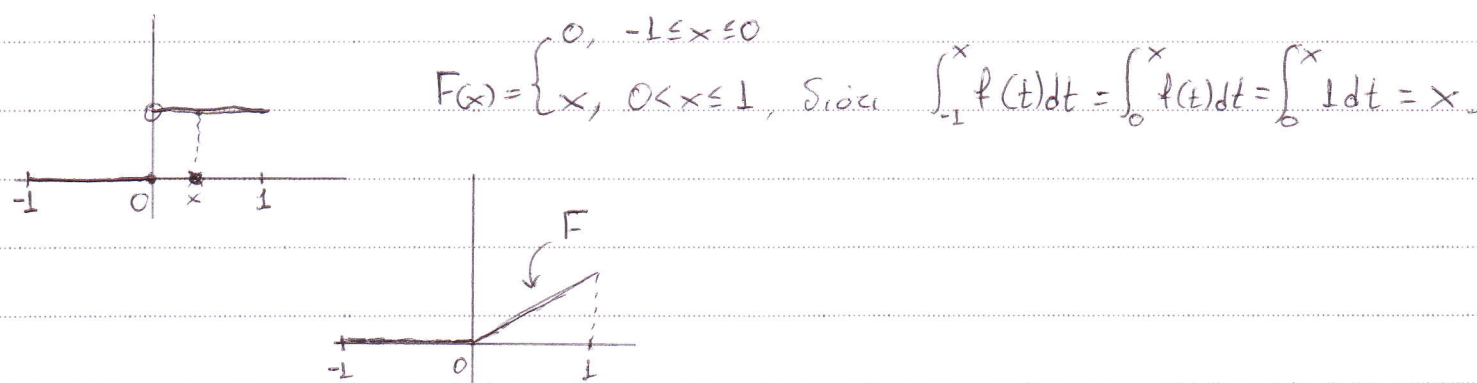 F(x) = { 0, -1 ≤ x ≤ 0
x, 0 < x ≤ 1, διότι ∫_{-1}^{x} f(t)dt = ∫_{0}^{x} f(t)dt = ∫_{0}^{x} 1dt = x.
-1 0 x 1
F
-1 0 1